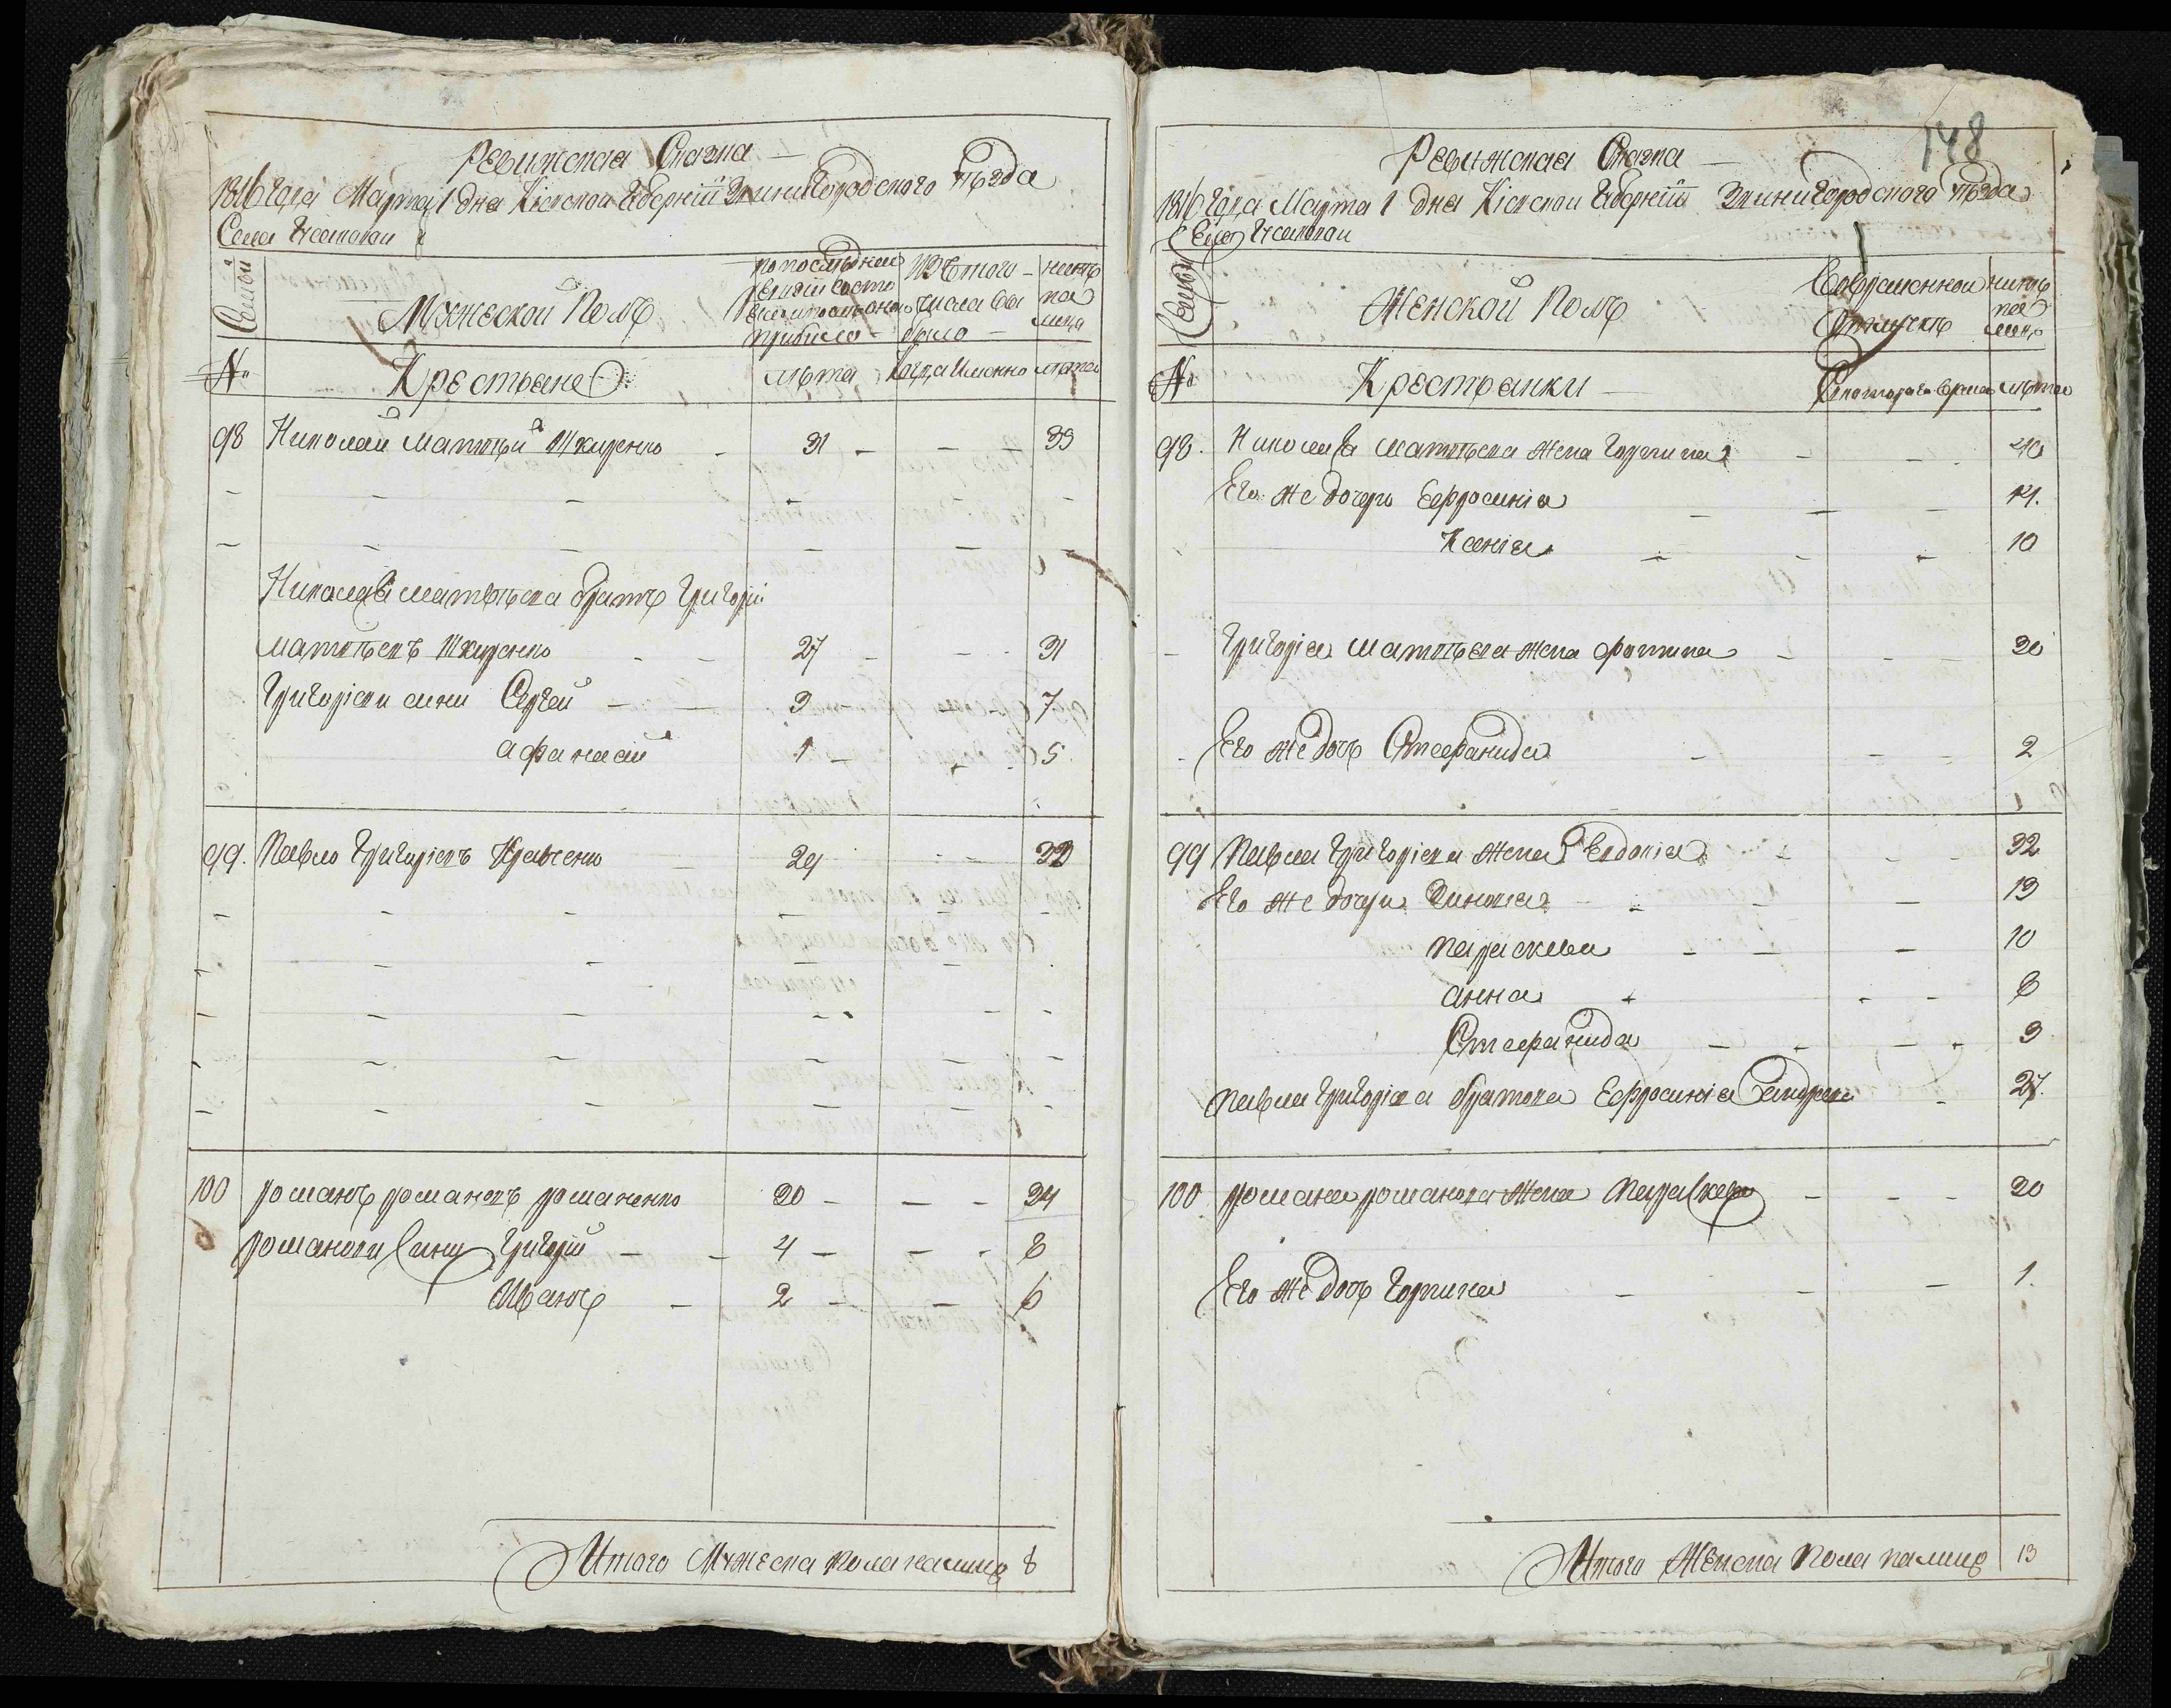 Ревижская Сказка
1816 года Марта 1 дня Кіевской Губерніи Звинигородского повѣта
Села
Семьи
Мужеской Полъ
По последней ревизіи состояло и после оной прибыло
Изъ того числа выбыло
Нынѣ на лицо
№
Крестьяне
лѣта
Когда Именно
лѣта
98 Николай Матвѣй Шкуренко - 31 - - - 35
Николая Матвѣева братъ Григорій
Матвѣевъ Шкуренко - - 27 - - - 31
Григоріевы сини Сергей - - 3 - - 7
афанасій 1 - - 5
99. Павло Григоріевъ Кравченко - 29 - - 33
100 романъ романовъ романенко 20 - - - 24
романови Сини Григорій - - 4 - - - 8
Иванъ - 2 - - 6
Итого Мужеска пола налицо 8
148
Ревижская Сказка
1816 года Марта 1 дня Кіевской Губерніи Звинигородского повѣта
Села
Семьи
Женской Полъ
Во временной Отлучке
Нинѣ на лицо
№
Крестьянки
Скоторого время
лѣта
98. Николая Матвѣева жена Горпина - - - 40
Его же дочери Ефросинія - - - 14.
Ксенія - - - 10
- Григорія Матвѣева жена фотина - - - 30
Его же дочъ Стефанида - - - 2
99 Павла Григоріева жена Евдокія - - - 32
Его же дочери - - - 13
параскева - - - 10
анна - - - 6
Стефанида - - - - 3
Павла Григоріева братова Ефросинія - 27.
100 романа романова жена Параскева - - - 20
Его же дочъ Горпина - - - 1.
Итого Женска Пола налицо 13